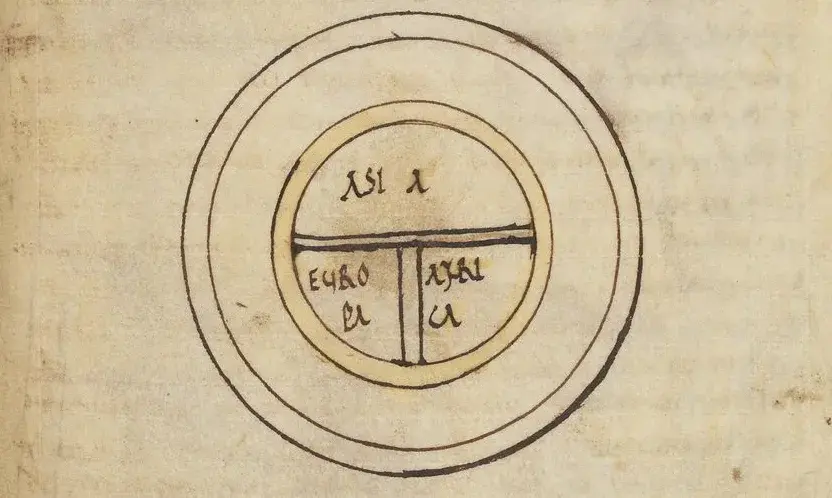 ASI A
EURO
PA
AFRI
CA